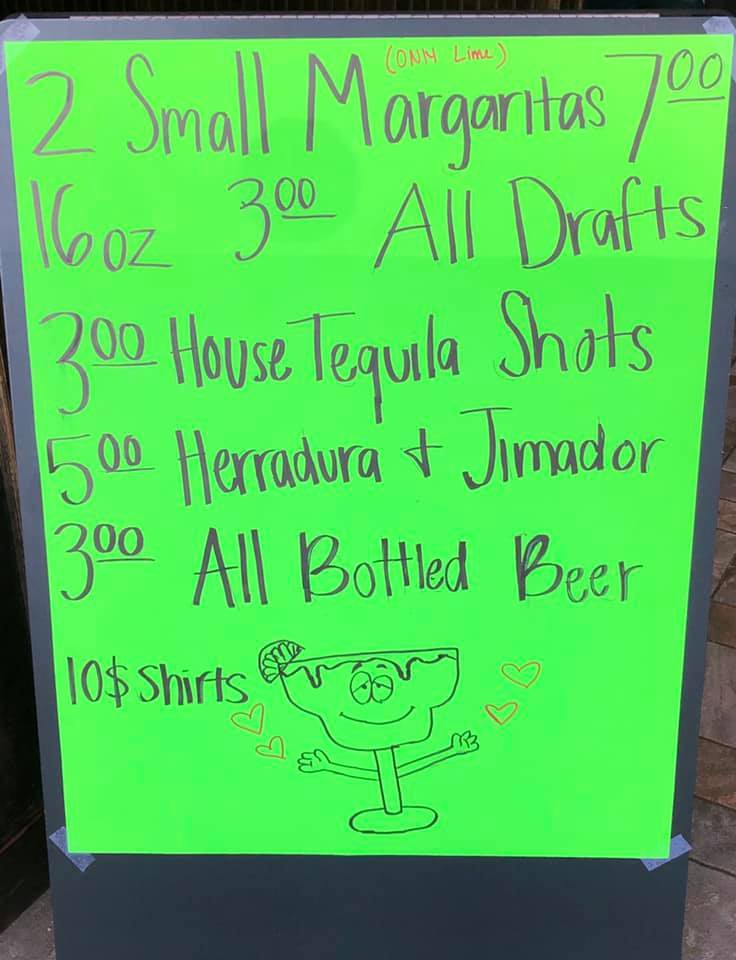 (ONLY Lime)
2 Small Margaritas 7.00
16 oz 3.00 All Drafts
3.00 House Tequila Shots
5.00 Herradura + Jimador
3.00 All Bottled Beer
10$ Shirts